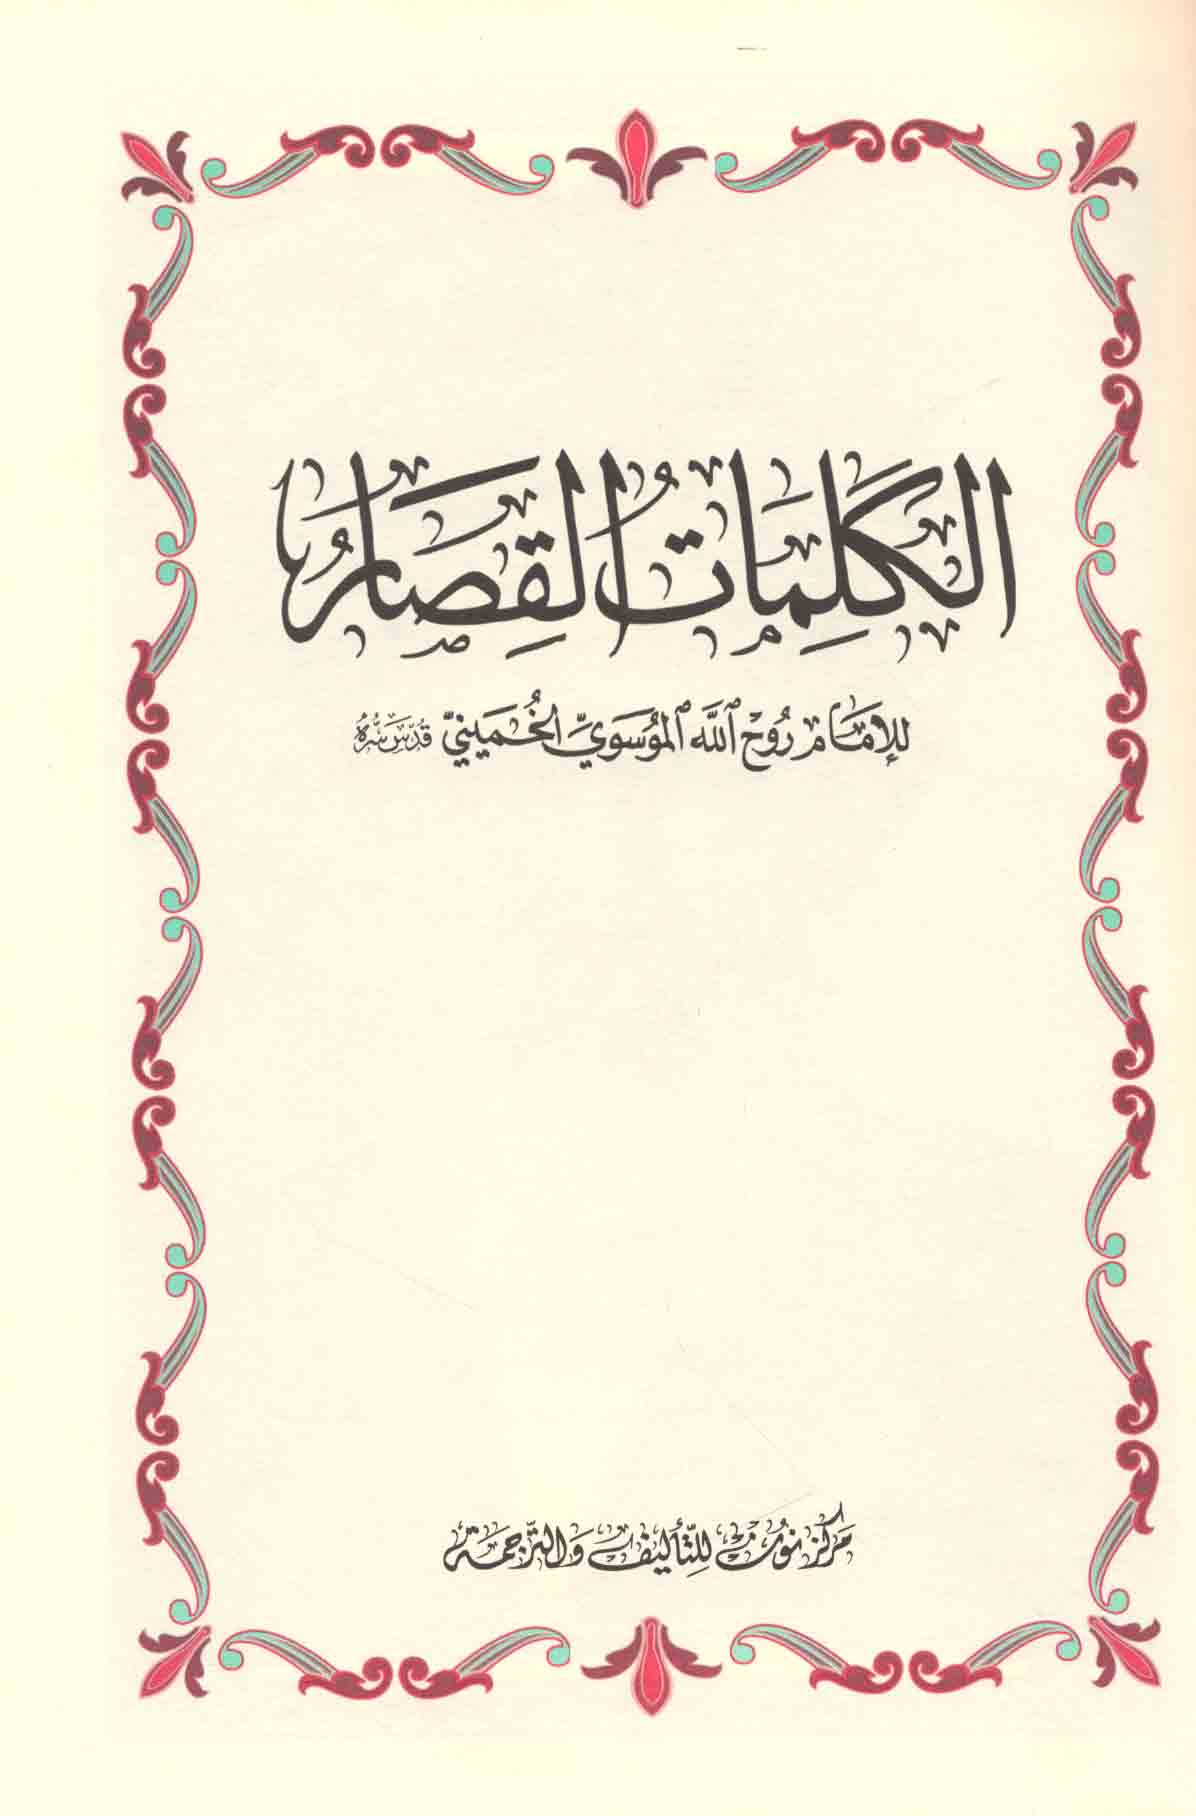 الكَلِمَاتُ القِصَارُ
للإمَام رُوُح ٱللَّه ٱلمُوُسَوِيّ الخُمَينيّ قُدّسَ سِرُّهُ
مَركز نُون للتَّأليف وَالتَّرجمَة